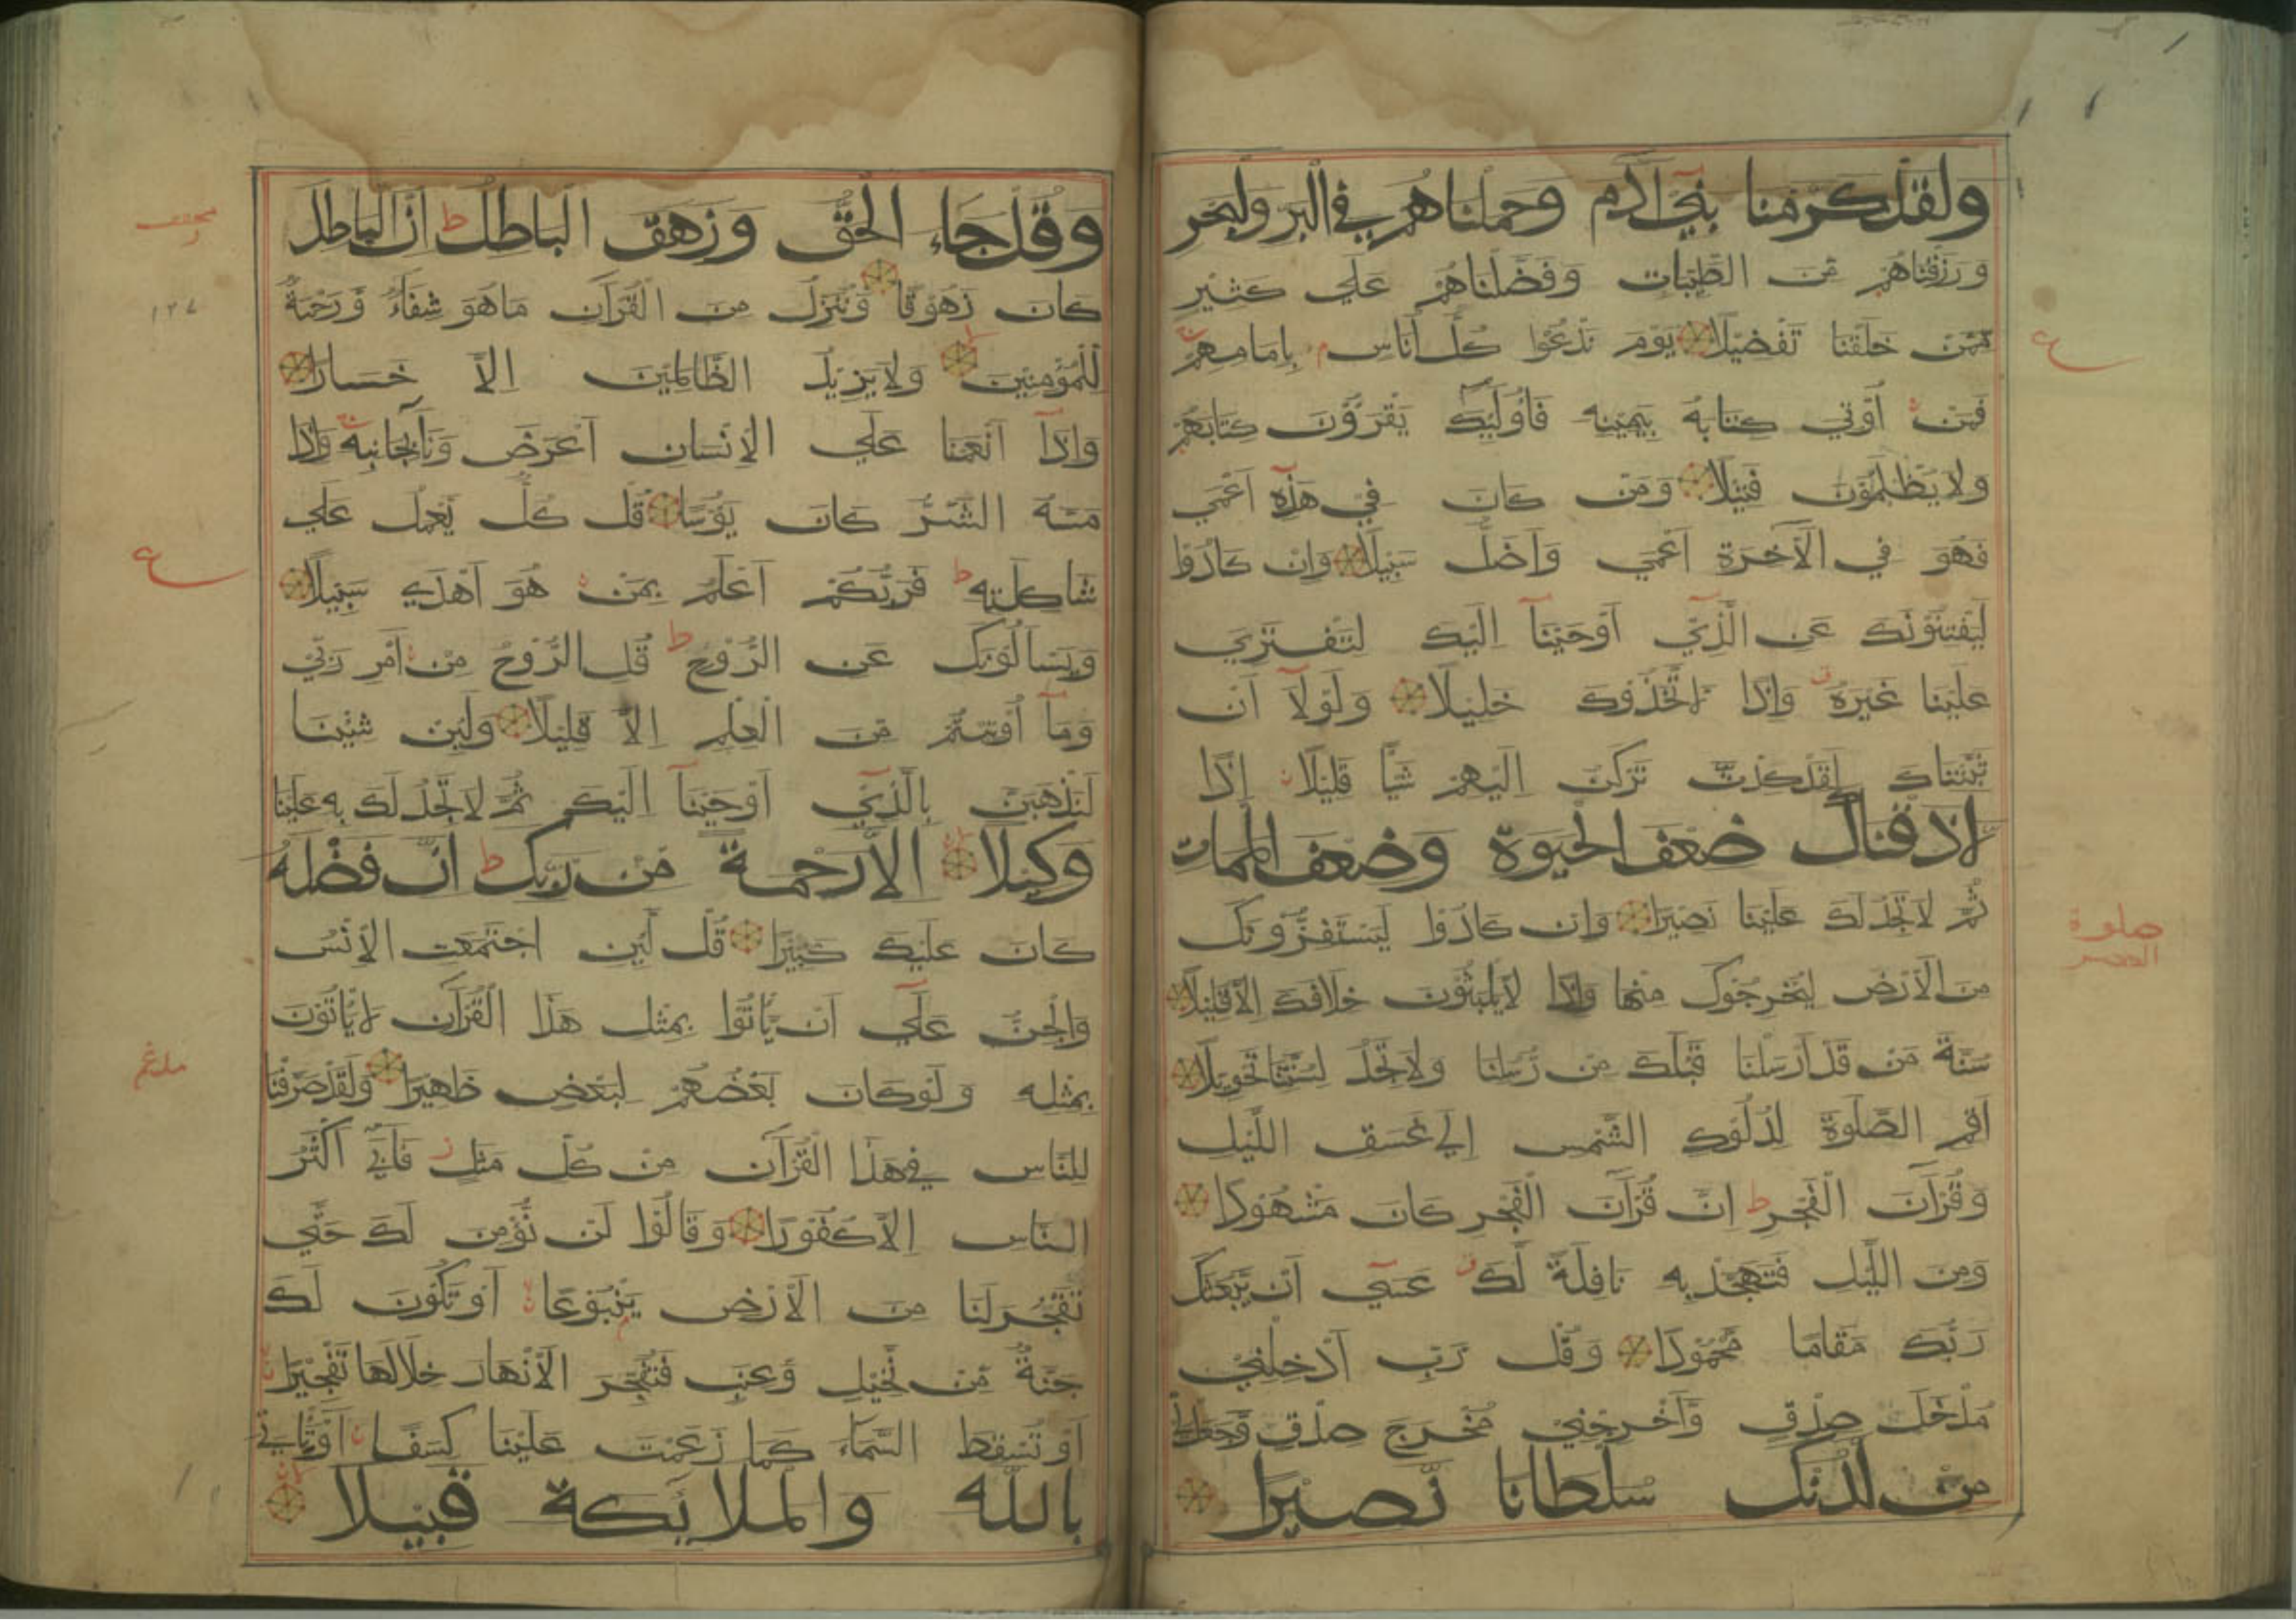 ولقد كرمنا بني آدم وحملناهم في البر والبحر
ورزقناهم من الطيبات وفضلناهم علي كثير
ممن خلقنا تفضيلا يوم ندعوا كل أناس بإمامهم
فمن أوتي كتابه بيمينه فأولئك يقرؤن كتابهم
ولا يظلمون فتيلا ومن كان في هذه أعمي
فهو في الآخرة أعمي وأضل سبيلا وإن كادوا
ليفتنونك عن الذي أوحينا إليك لتفتري
علينا غيره وإذا لاتخذوك خليلا ولولا أن
ثبتناك لقد كدت تركن إليهم شيأ قليلا إذا
لأذقناك ضعف الحيوة وضعف الممات
ثم لا تجد لك علينا نصيرا وإن كادوا ليستفزونك
من الأرض ليخرجوك منها وإذا لا يلبثون خلافك إلا قليلا
سنة من قد أرسلنا قبلك من رسلنا ولا تجد لسنتنا تحويلا
أقم الصلوة لدلوك الشمس إلي غسق الليل
وقرآن الفجر ط إن قرآن الفجر كان مشهودا
ومن الليل فتهجد به نافلة لك عسي أن يبعثك
ربك مقاما محمودا وقل رب أدخلني
مدخل صدق وأخرجني مخرج صدق واجعل لي
من لدنك سلطانا نصيرا
ع
صلوة
العصر
وقل جاء الحق وزهق الباطل ط إن الباطل
كان زهوقا وننزل من القرآن ما هو شفاء ورحمة
للمؤمنين ولا يزيد الظالمين إلا خسارا
وإذا أنعمنا علي الإنسان أعرض ونأ بجانبه وإذا
مسه الشر كان يؤسا قل كل يعمل علي
شاكلته ط فربكم أعلم بمن هو أهدي سبيلا
ويسألونك عن الروح ط قل الروح من أمر ربي
وما أوتيتم من العلم إلا قليلا ولئن شئنا
لنذهبن بالذي أوحينا إليك ثم لا تجد لك به علينا
وكيلا إلا رحمة من ربك ط إن فضله
كان عليك كبيرا قل لئن اجتمعت الإنس
والجن علي أن يأتوا بمثل هذا القرآن لا يأتون
بمثله ولو كان بعضهم لبعض ظهيرا ولقد صرفنا
للناس في هذا القرآن من كل مثل ز فأبي أكثر
الناس إلا كفورا وقالوا لن نؤمن لك حتي
تفجر لنا من الأرض ينبوعا أو تكون لك
جنة من نخيل وعنب فتفجر الأنهار خلالها تفجيرا
أو تسقط السماء كما زعمت علينا كسفا أو تأتي
بالله والملائكة قبيلا
١٢٧
ع